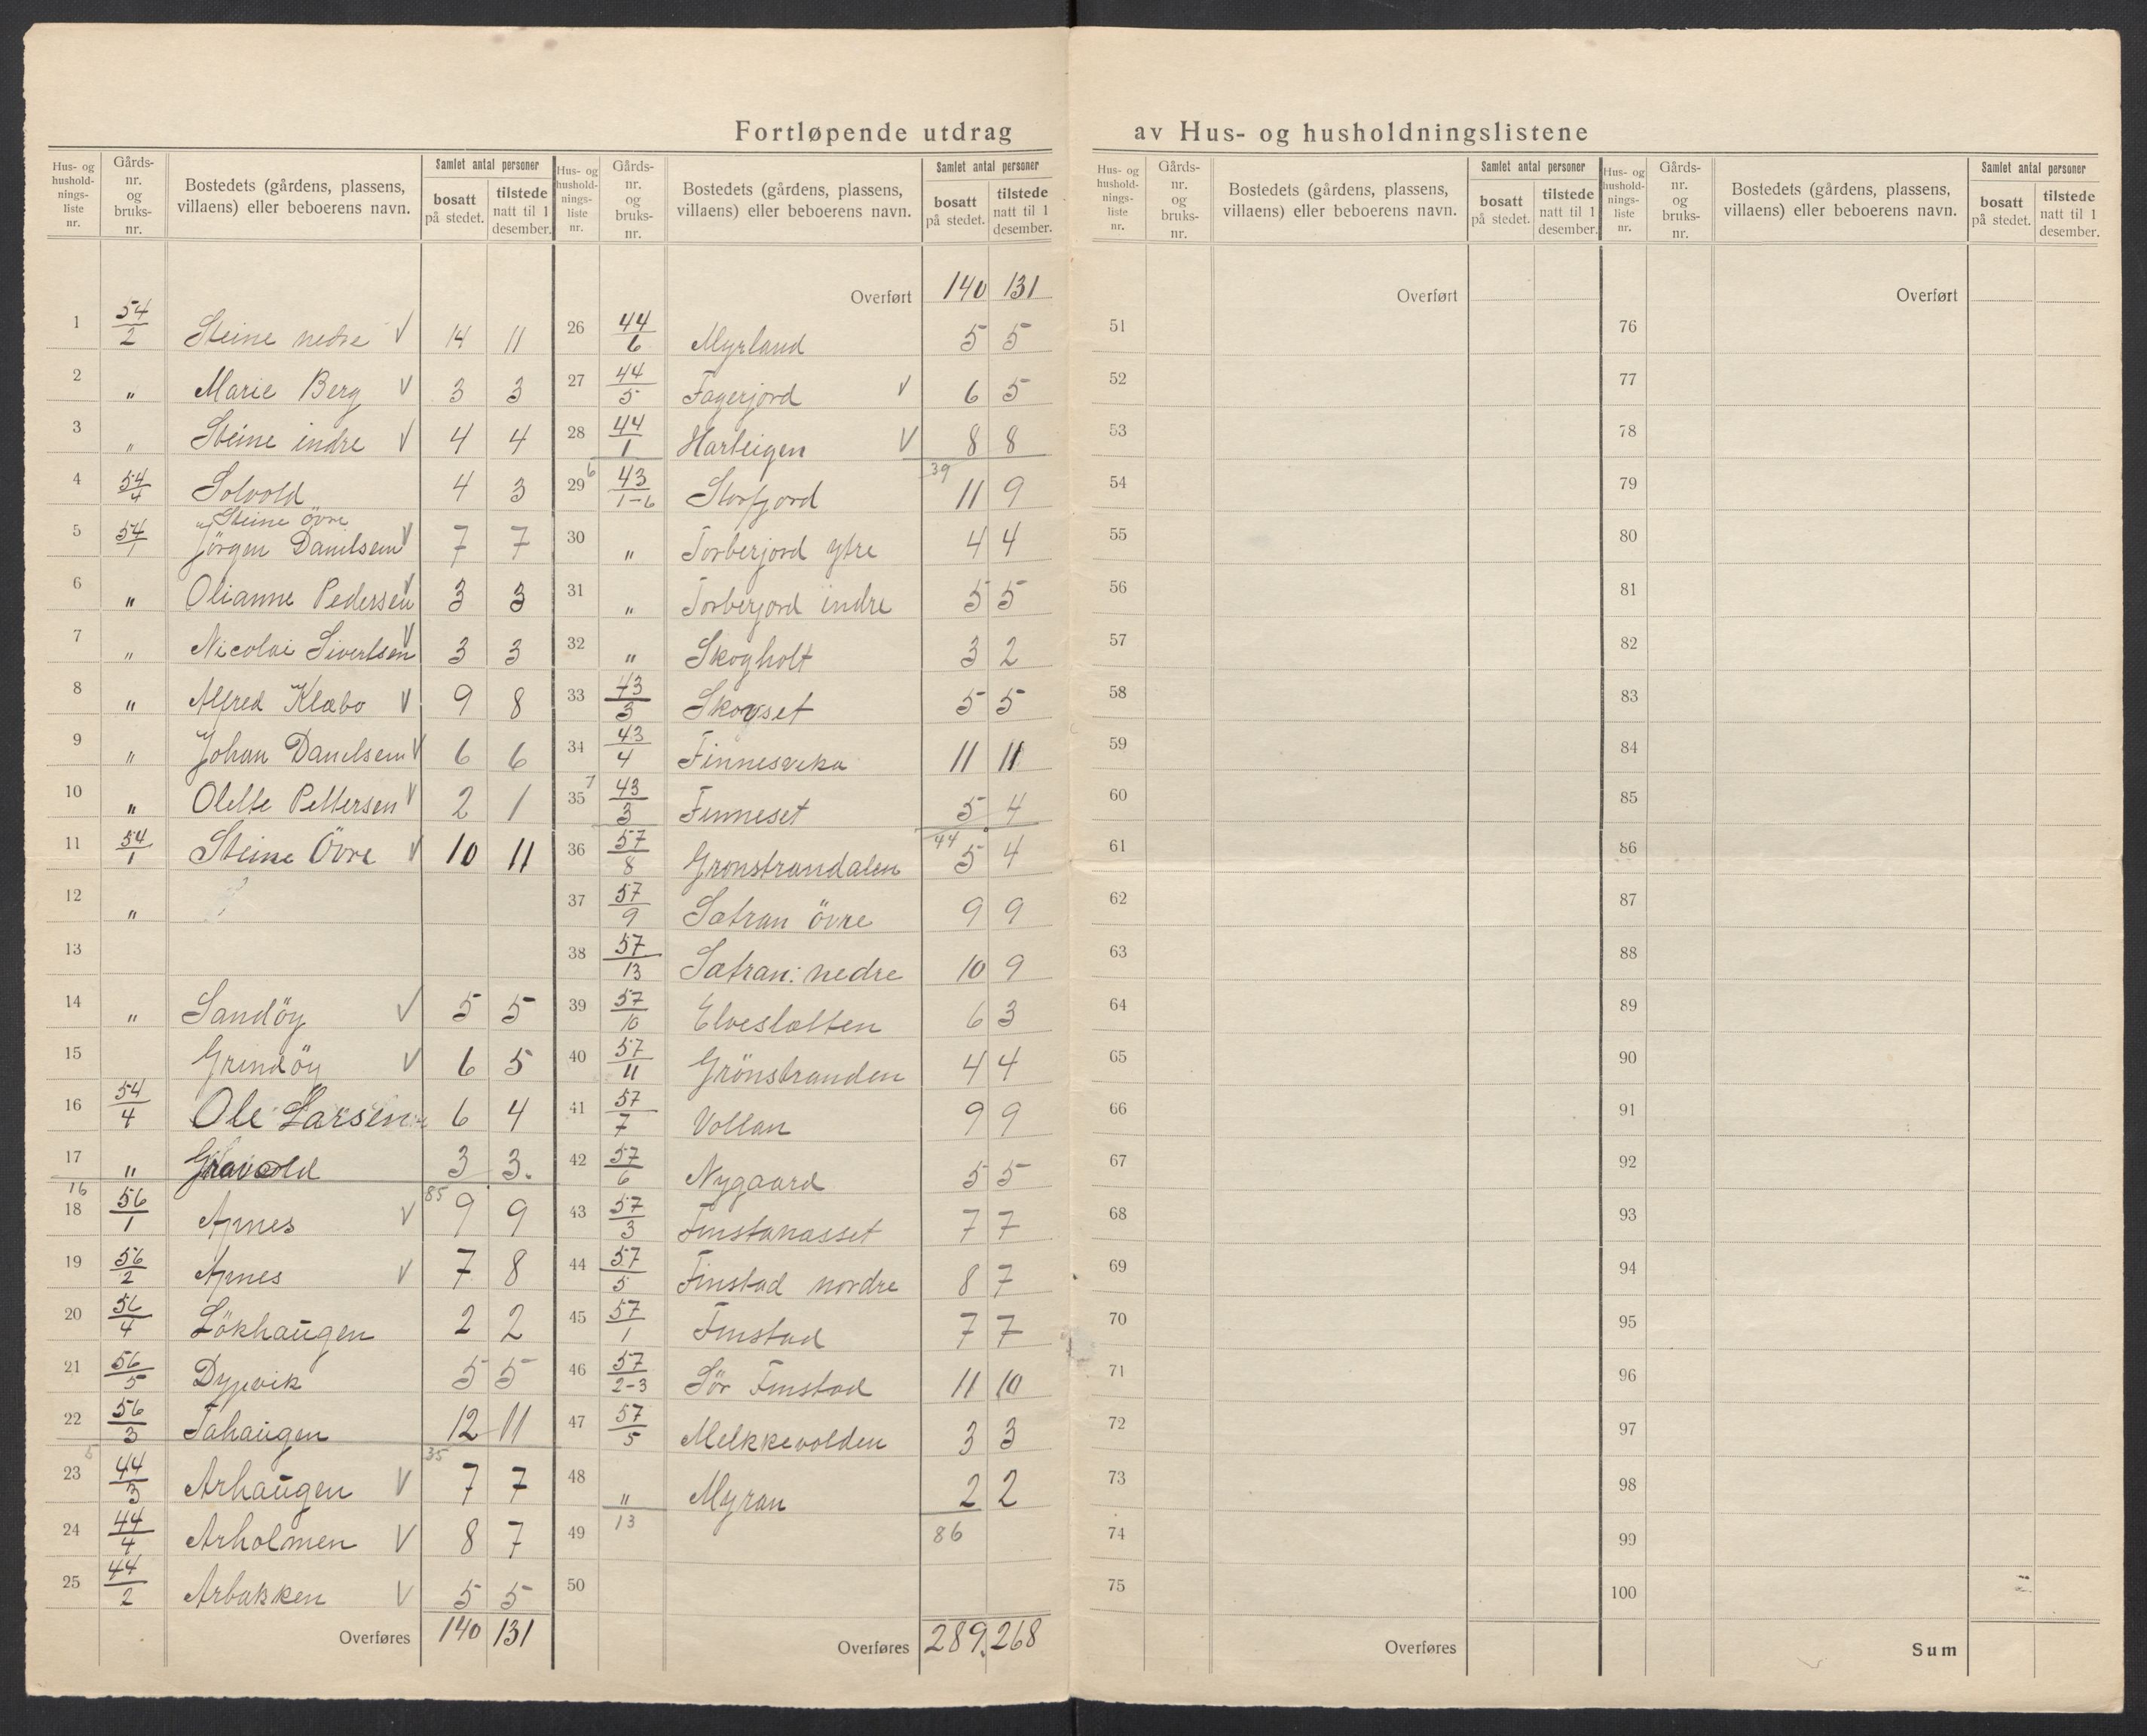 Fortløpende utdrag av Hus- og husholdningslistene
Hus- og husholdnings-liste nr. | Gårds-nr. og bruks-nr. | Bostedets (gårdens, plassens, villaens) eller beboerens navn. | Samlet antal personer | bosatt på stedet. | tilstede natt til 1 desember.
1 54/2 Steine nedre V 14 11
2 " Marie Berg V 3 3
3 " Steine indre V 4 4
4 54/4 Solvold 4 3
Steine Övre
5 54/1 Jörgen Danilsen V 7 7
6 " Olianne Pedersen V 3 3
7 " Nicolai Sivertsen V 3 3
8 " Alfred Klæbo V 9 8
9 " Johan Danilsen V 6 6
10 " Olette Pettersen V 2 1
11 54/1 Steine Övre V 10 11
12 "
13
14 " Sandöy V 5 5
15 Grindöy V 6 5
16 54/4 Ole Larsen 6 4
17 " Gravold 3 3.
16 85
18 56/1 Apnes V 9 9
19 56/2 Apnes V 7 8
20 56/4 Lökhaugen 2 2
21 56/5 Dypvik 5 5
22 56/3 Tahaugen 12 11
5 35
23 44/3 Arhaugen V 7 7
24 44/4 Arholmen V 8 7
25 44/2 Arbakken V 5 5
Overføres 140 131
Hus- og husholdnings-liste nr. | Gårds-nr. og bruks-nr. | Bostedets (gårdens, plassens, villaens) eller beboerens navn. | Samlet antal personer | bosatt på stedet. | tilstede natt til 1 desember.
Overført 140 131
26 44/6 Myrland 5 5
27 44/5 Fagerjord V 6 5
28 44/1 Harteigen V 8 8
6 39
29 43/1-6 Storfjord 11 9
30 " Torberjord ytre 4 4
31 " Torberjord indre 5 5
32 " Skogholt 3 2
33 43/3 Skogset 5 5
34 43/4 Finnesvika 11 11
7
35 43/3 Finneset 5 4
44
36 57/8 Grønstrandalen 5 4
37 57/9 Sætran övre 9 9
38 57/13 Sætran: nedre 10 9
39 57/10 Elveslætten 6 3
40 57/11 Grönstranden 4 4
41 57/7 Vollan 9 9
42 57/6 Nygaard 5 5
43 57/3 Finstanasset 7 7
44 57/5 Finstad nordre 8 7
45 57/1 Finstad 7 7
46 57/2-3 Sör Finstad 11 10
47 57/5 Melkkevolden 3 3
48 " Myran 2 2
49 13 86
50
Overføres 289. 268
Hus- og husholdnings-liste nr. | Gårds-nr. og bruks-nr. | Bostedets (gårdens, plassens, villaens) eller beboerens navn. | Samlet antal personer | bosatt på stedet. | tilstede natt til 1 desember.
Overført
51
52
53
54
55
56
57
58
59
60
61
62
63
64
65
66
67
68
69
70
71
72
73
74
75
Overføres
Hus- og husholdnings-liste nr. | Gårds-nr. og bruks-nr. | Bostedets (gårdens, plassens, villaens) eller beboerens navn. | Samlet antal personer | bosatt på stedet. | tilstede natt til 1 desember.
Overført
76
77
78
79
80
81
82
83
84
85
86
87
88
89
90
91
92
93
94
95
96
97
98
99
100
Sum